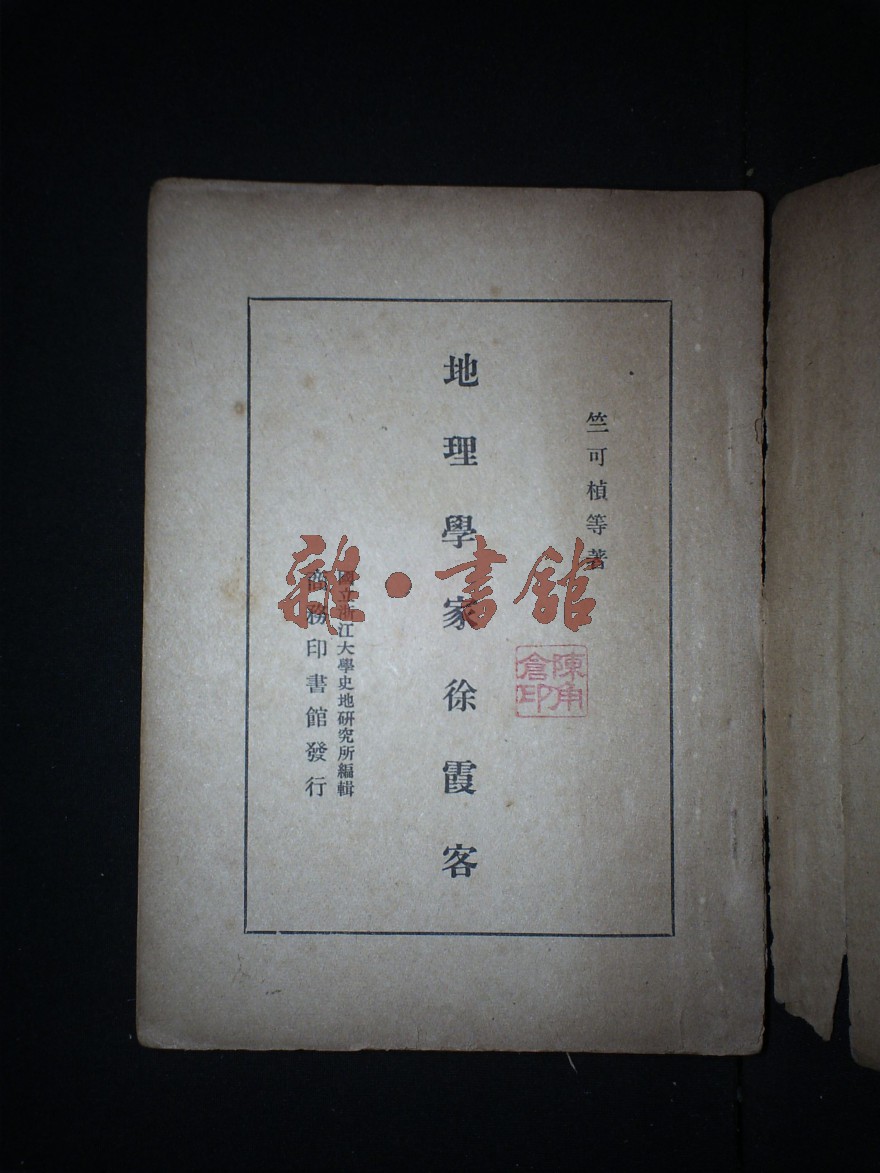 竺可楨等著
地理學家徐霞客
國立浙江大學史地研究所編輯
商務印書館發行
陳角
倉印
雜·書館